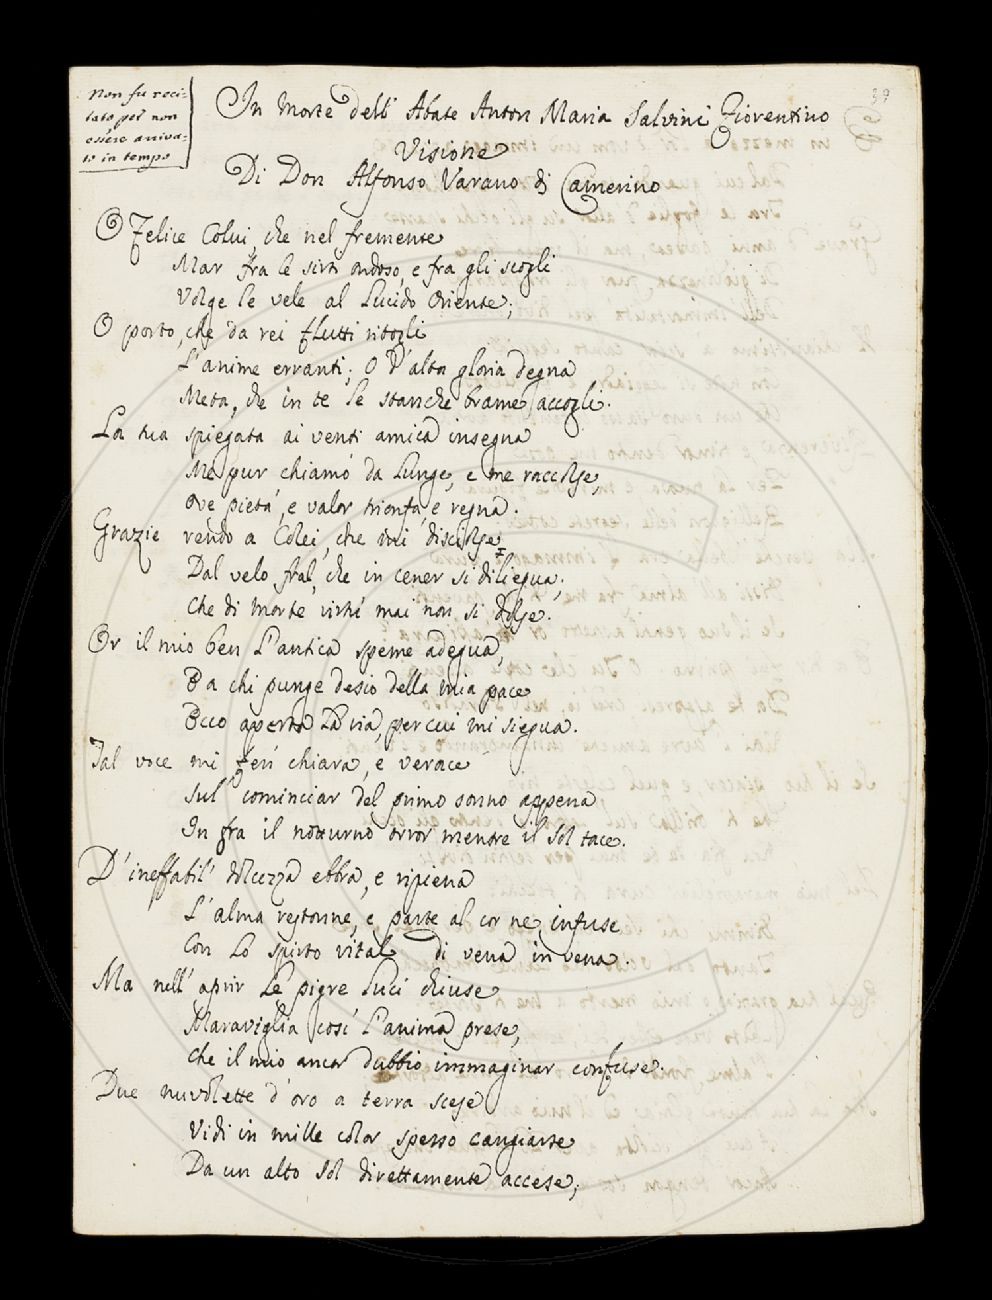 39
Non fu reci-
tato per non
essere arriva-
to in tempo
In Morte dell' Abate Anton Maria Salvini Fiorentino
Visione
Di Don Alfonso Varano di Camerino
O Felice Colui, che nel fremente
Mar fra le sirti ondoso, e fra gli scogli
Volge le vele al lucido Oriente;
O porto, che da rei flutti ritogli
L'anime erranti; O d'alta gloria degna
Meta, che in te le stanche brame accogli.
La tua spiegata ai venti amica insegna
Me pur chiamò da lunge, e me raccolse,
Ove pietà, e valor trionfa e regna.
Grazie rendo a Colei, che mi disciolse
Dal velo fral, che in cener si dilegua;
Che di morte virtù mai non si dolse.
Or il mio ben l'antica speme adegua,
E a chi punge desio della mia pace
Ecco aperta la via, per cui mi siegua.
Tal voce mi ferì chiara, e verace
Sul cominciar del primo sonno appena
In fra il notturno orror mentre il Sol tace.
D'ineffabil' dolcezza ebbra, e ripiena
L'alma restonne, e parte al cor ne infuse
Con lo spirto vital di vena in vena.
Ma nell' aprir le pigre luci chiuse
Maraviglia così l'anima prese,
Che il mio ancor dubbio immaginar confuse.
Due nuvolette d'oro a terra scese
Vidi in mille color spesso cangiarse
Da un alto Sol direttamente accese;